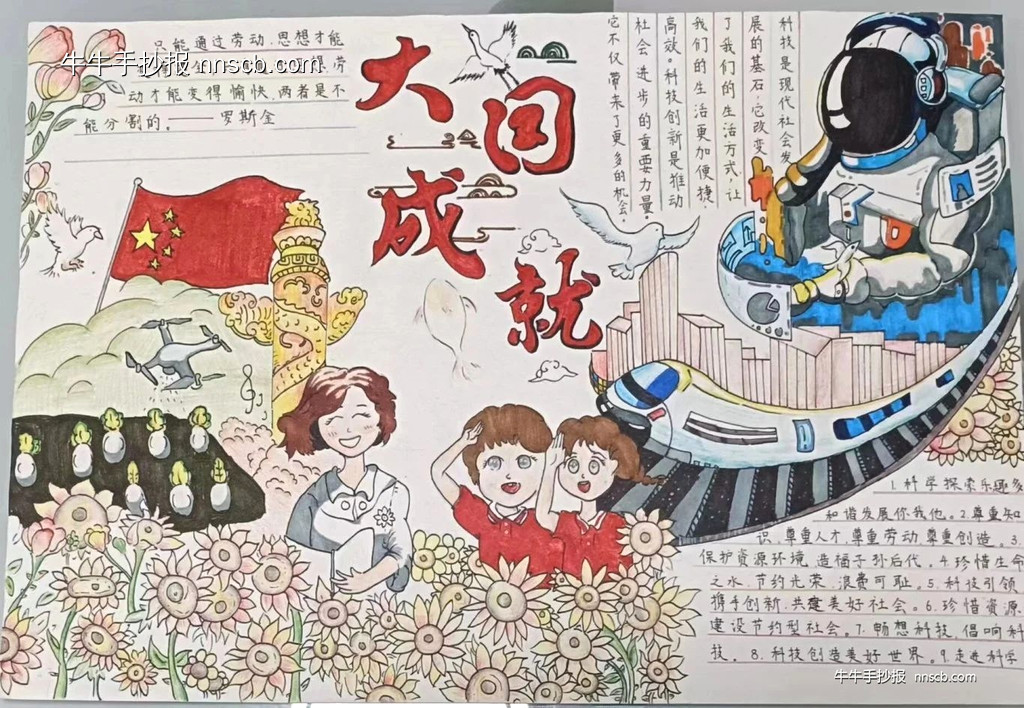 只能通过劳动.思想才能
牛牛手抄报 nnscb.com
劳
动才能变得愉快.两者是不
能分割的。——罗斯金
大
国
成
就
科技是现代社会发
展的基石.它改变
了我们的生活方式.让
我们的生活更加便捷.
高效。科技创新是推动
社会进步的重要力量.
它不仅带来了更多的机会.
1.科学探索乐趣多
和谐发展你我他。2.尊重知
识.尊重人才.尊重劳动.尊重创造。3.
保护资源环境.造福子孙后代。4.珍惜生命
之水.节约光荣.浪费可耻。5.科技引领
携手创新.共建美好社会。6.珍惜资源
建设节约型社会。7.畅想科技.倡响科
技。8.科技创造美好世界。9.走进科学
牛牛手抄报 nnscb.com